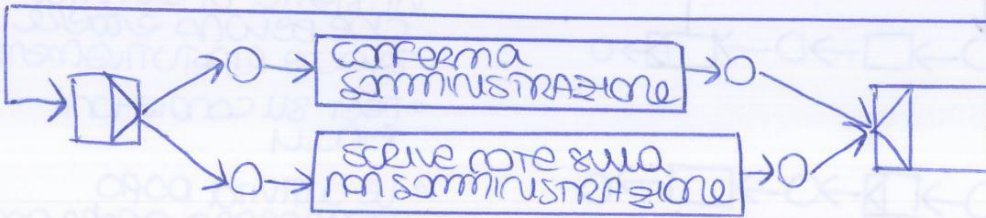 CONFERMA
SOMMINISTRAZIONE
SCRIVE NOTE SULLA
NON SOMMINISTRAZIONE